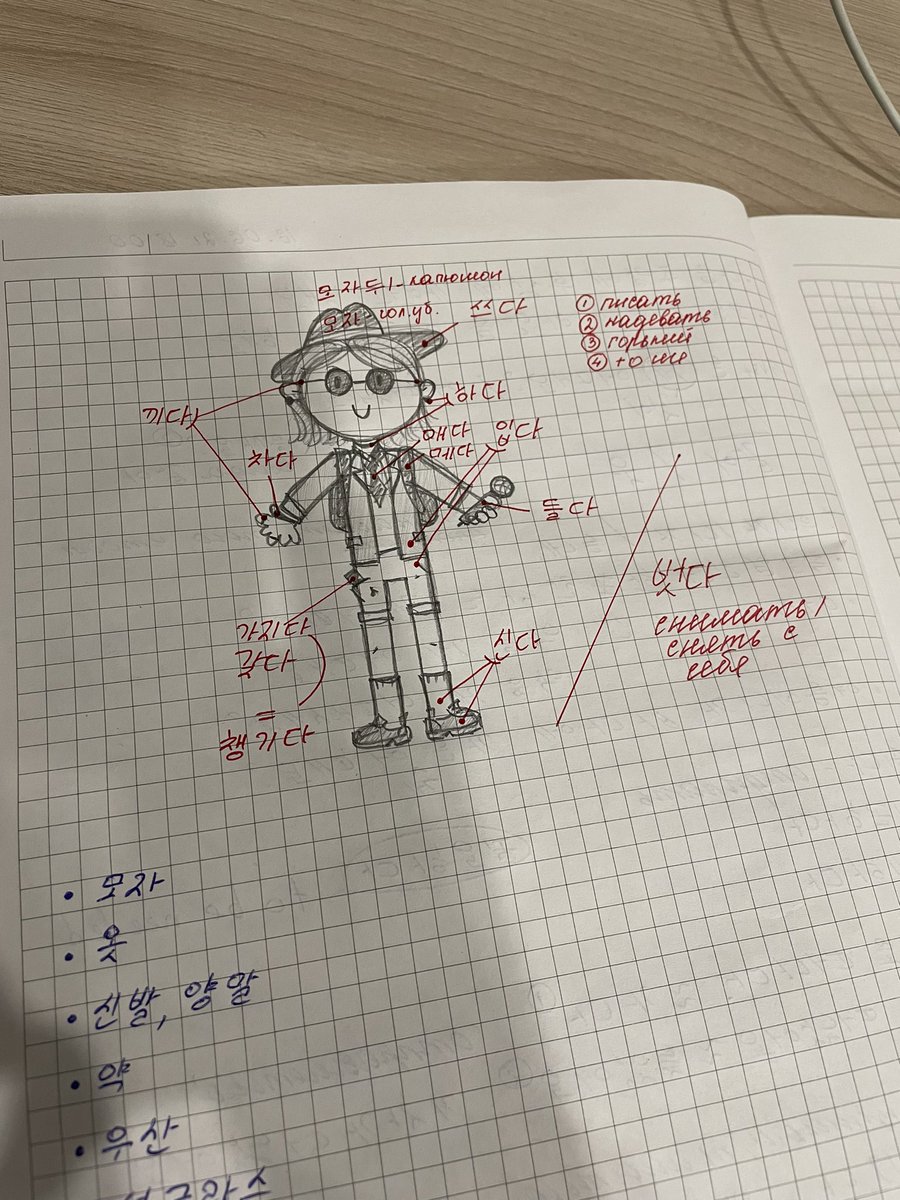 모자 - капюшон
모자 гол.уб.
쓰다
① писать
② надевать
③ горький
④
끼다
하다
차다
매다
메다
입다
들다
벗다
снимать/
снять с
себя
가지다
갖다
=
챙기다
신다
• 모자
• 옷
• 신발, 양말
• 약
• 우산